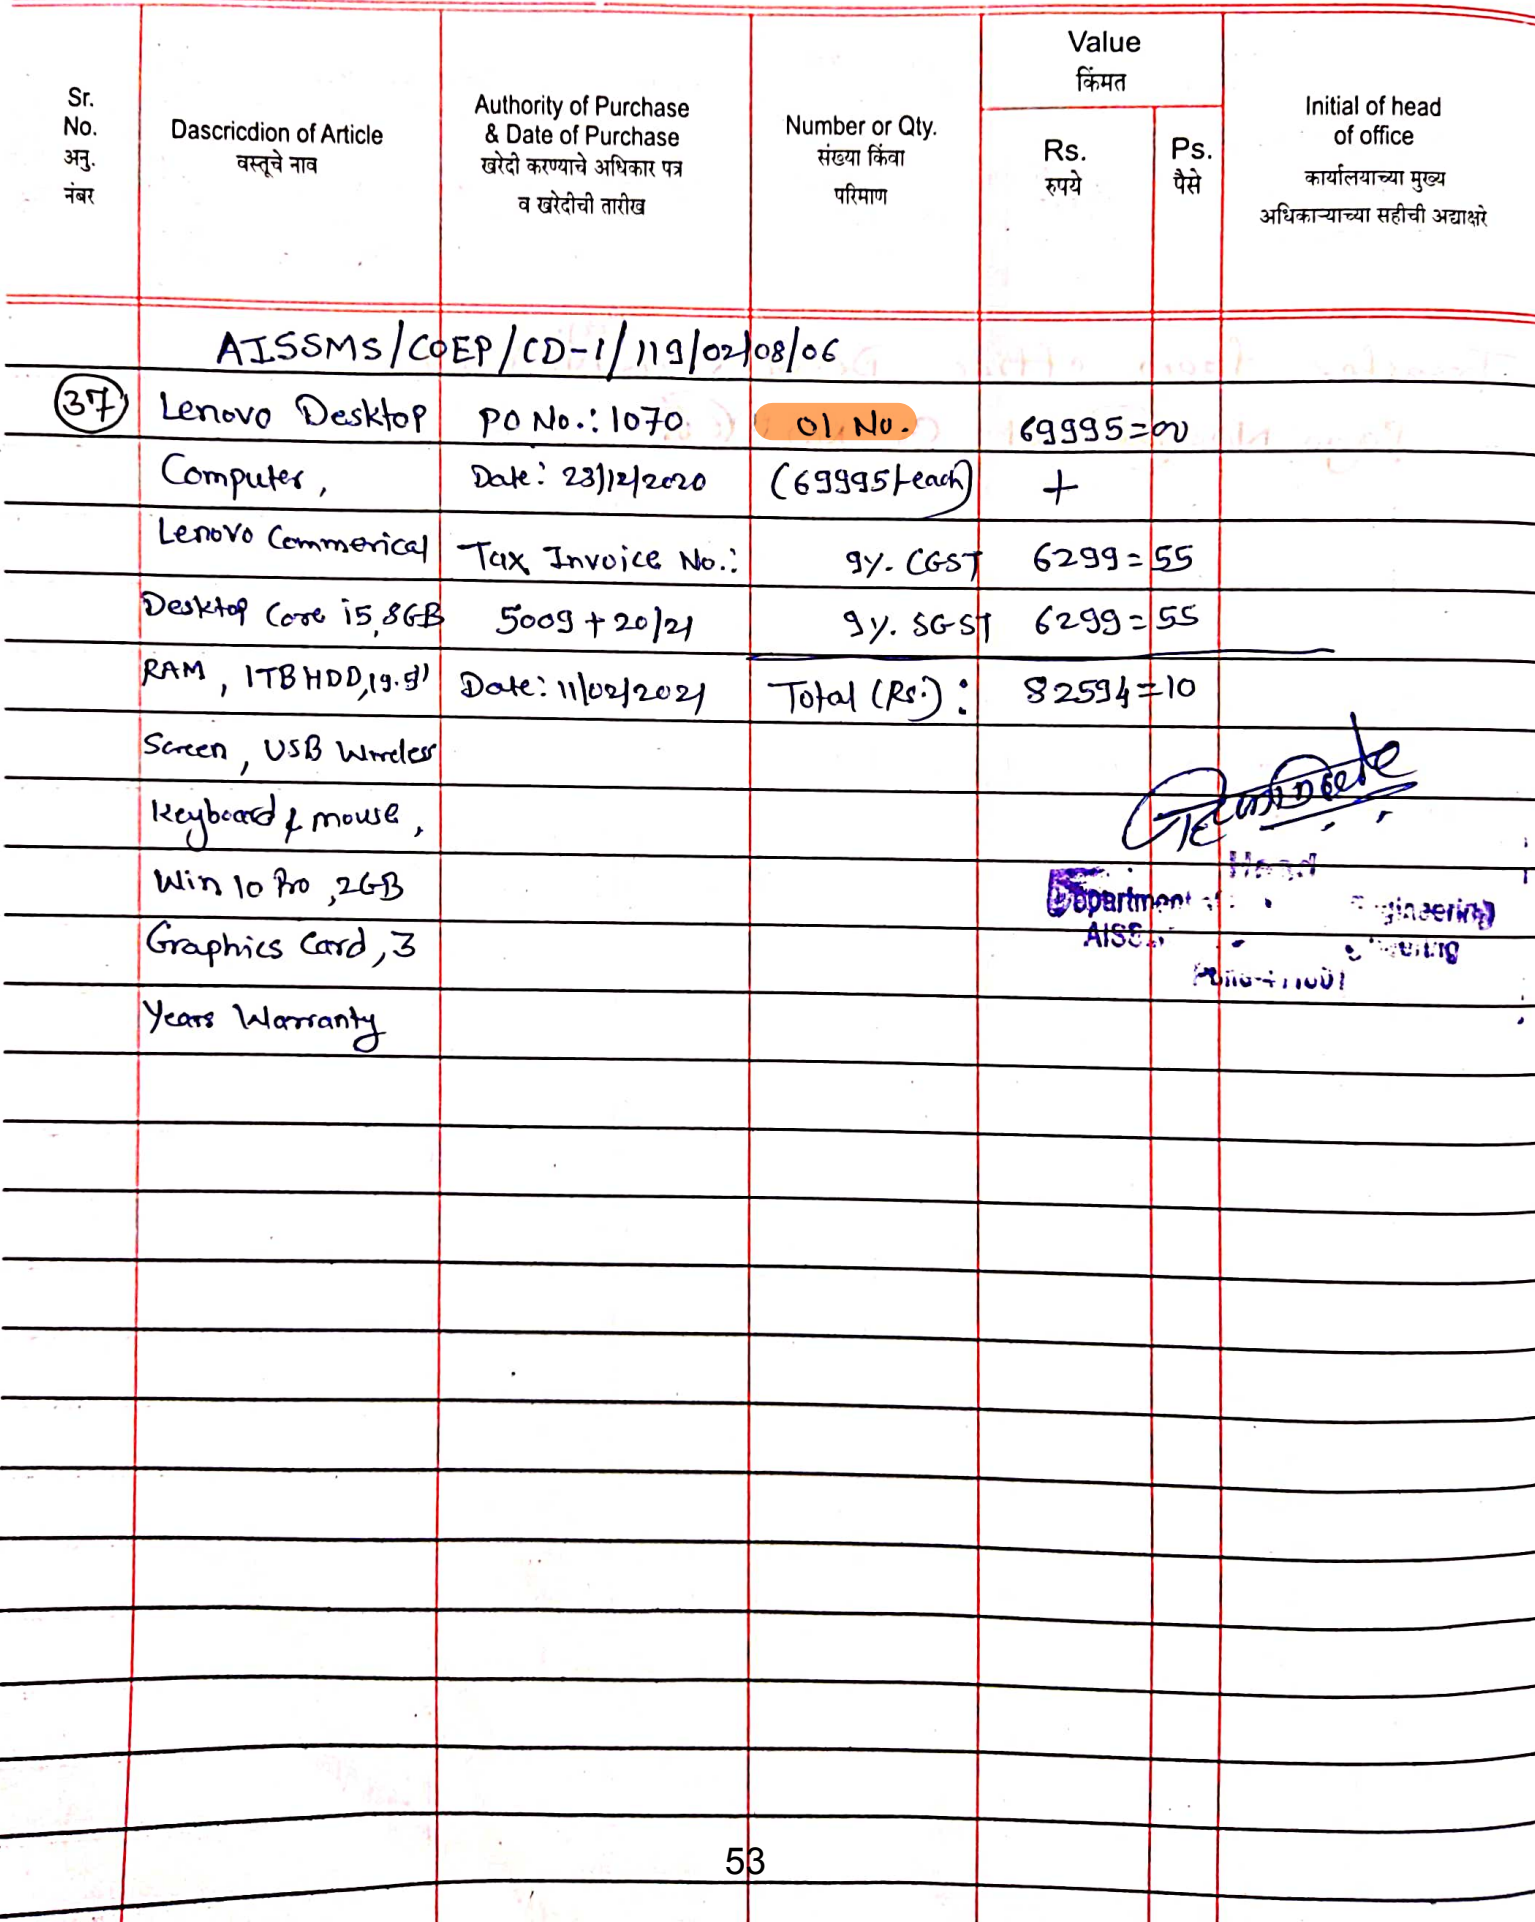 Value
किंमत
Sr.
No.
अनु.
नंबर
Dascricdion of Article
वस्तूचे नाव
Authority of Purchase
& Date of Purchase
खरेदी करण्याचे अधिकार पत्र
व खरेदीची तारीख
Number or Qty.
संख्या किंवा
परिमाण
Rs.
रुपये
Ps.
पैसे
Initial of head
of office
कार्यालयाच्या मुख्य
अधिकाऱ्याच्या सहीची अद्याक्षरे
AISSMS/COEP/CD-1/119/02/08/06
37 Lenovo Desktop PO No.: 1070 01 No. 69995=00
Computer, Date: 23/12/2020 (69995/-each) +
Lenovo Commerical Tax Invoice No.: 9%. CGST 6299=55
Desktop Core i5, 8GB 5009+20/21 9%. SGST 6299=55
RAM, 1TB HDD, 19.5" Date: 11/02/2021 Total (Rs.): 82594=10
Screen, USB Wireless
Keyboard & mouse,
Win 10 Pro, 2GB
Graphics Card, 3
Years Warranty
Head
Department
53